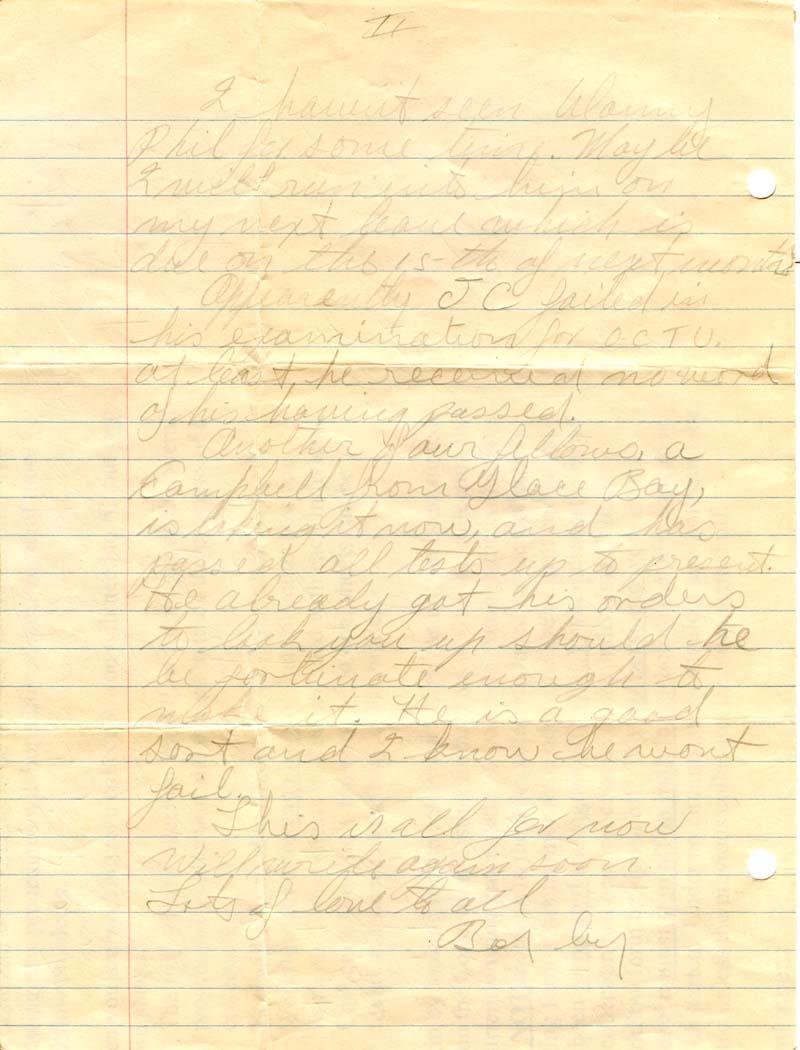 II
I havent seen
Phil for some time. Maybe
I will run into him on
my next leave which is
due on the 15-th of next month
Apparently J C failed in
his examination for O C T U.
at least, he received no word
of his having passed.
Another of our fellows, a
Campbell from Glace Bay,
is taking it now, and has
passed all tests up to present.
He already got his orders
to look you up should he
be fortunate enough to
make it. He is a good
sort and I know he wont
fail.
This is all for now
Will write again soon
Lots of love to all